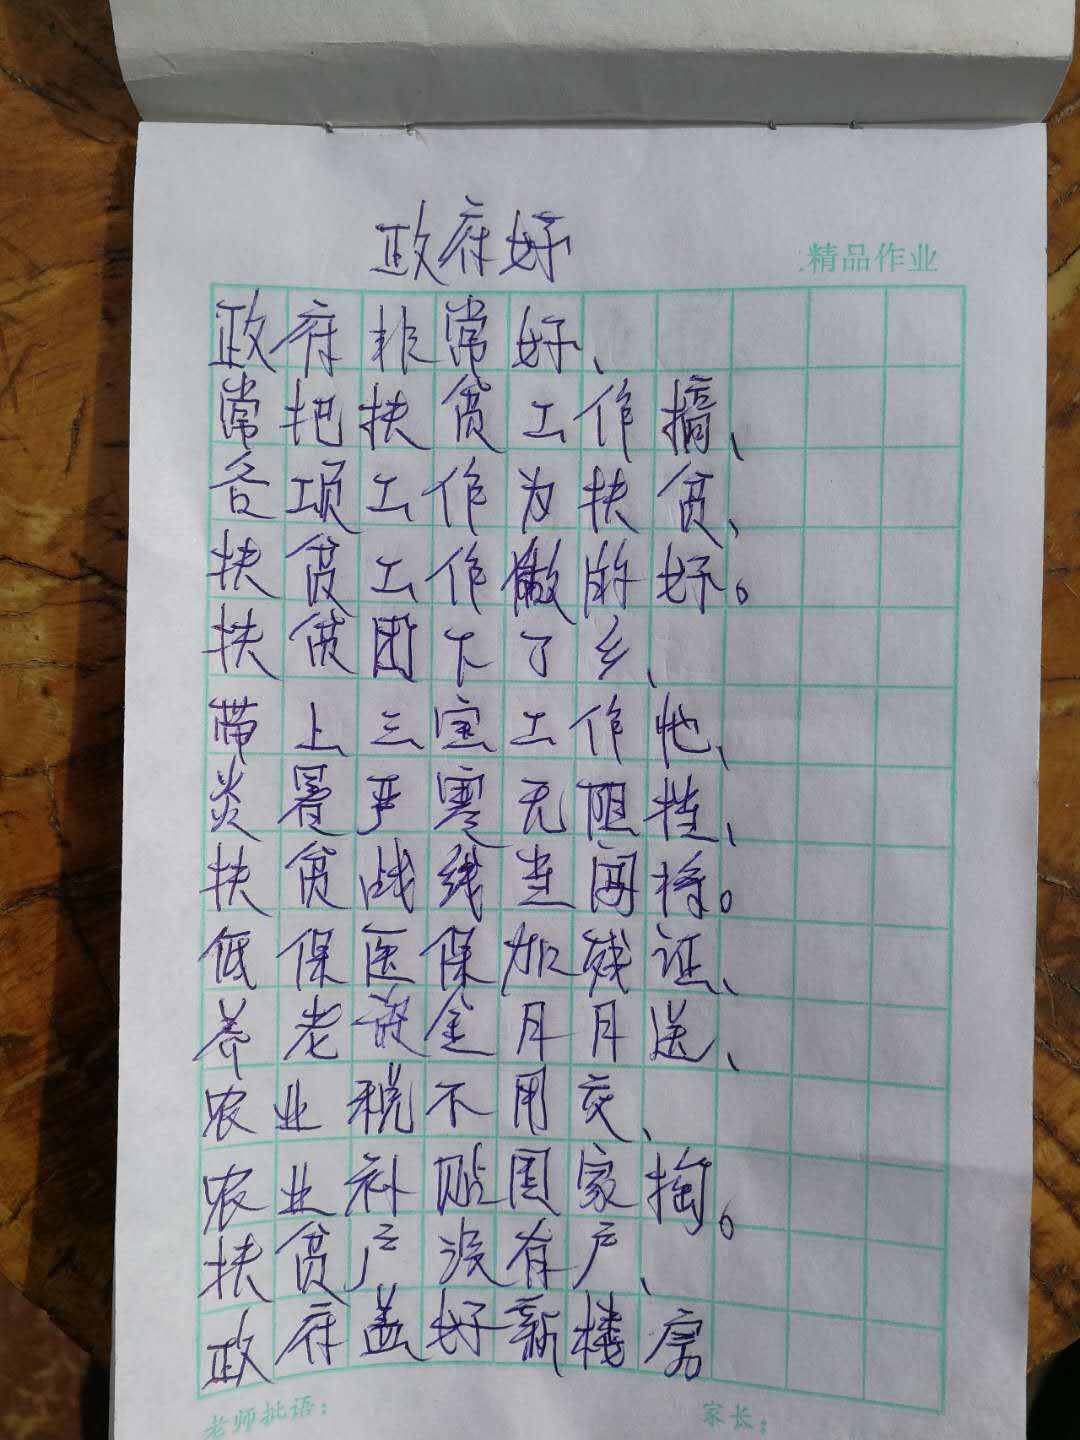 政府好
精品作业
政府非常好、
常把扶贫工作搞、
各项工作为扶贫、
扶贫工作做的好。
扶贫团下了乡、
带上三宝工作忙、
炎暑严寒无阻挡、
扶贫战线当闯将。
低保医保加残证、
养老资金月月送、
农业税不用交、
农业补贴国家掏。
扶贫户没有户、
政府盖好新楼房
老师批语：
家长：